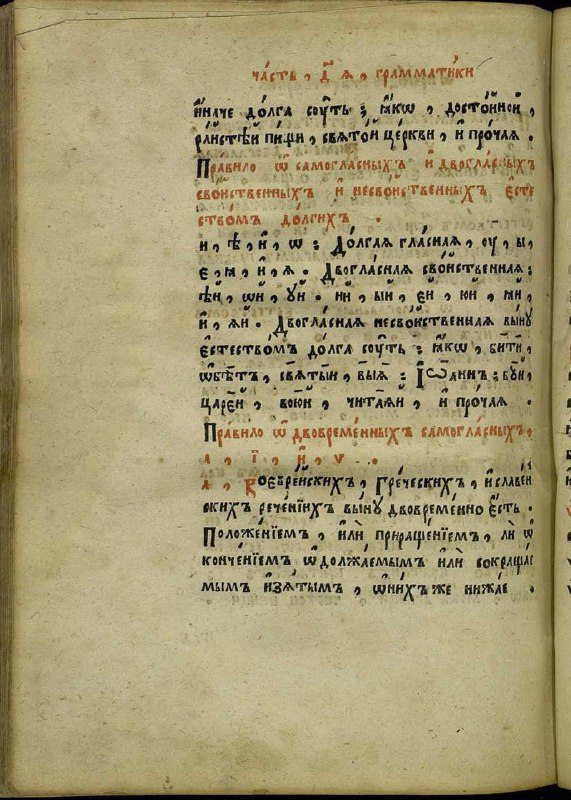 ча́сть , д҃ ѧ , грамма́ти́ки
и҆́наче до́лга сѹ́ть ; ꙗ҆́кѡ , досто́йной ,
ра́йстѣй пи́щи , свято́й це́ркви , и҆ про́чая .
Пра́вило ѿ самогла́сныхъ и҆ двогла́сныхъ
сво́йственныхъ и҆ несво́йственныхъ є҆сте
ство́мъ до́лгихъ .
и , ѣ , и҆ , ѡ : До́лгая гла́сная , ѹ , ы ,
є , ѩ , и҆ , ѧ . Двогла́сная сво́йственная :
ѣй , ѡй , ѹй . ий , ый , єй , юй ,
и҆ , ѧй . Двогла́сная несво́йственная вы́ну
є҆стество́мъ до́лга сѹ́ть : ꙗ҆́кѡ , би́ти ,
ѡ҆бѣ́тъ , свѧты́й , вы́ѧ : І҆ѡа́ннъ :
царе́й , вою́й , чита́ѧй , и҆ про́чаѧ .
Пра́вило ѿ двовре́менныхъ самогла́сныхъ ,
а , і҆ , и҆ , ѵ .
а , Воє҆вре́йскихъ , Гре́ческихъ , и҆ славе́н
скихъ рече́нїихъ вы́ну двовре́менно є҆́сть .
Положе́нїємъ , и҆лѝ прираще́нїємъ , лѝ ѿ
конче́нїємъ ѿдолжа́ємымъ и҆лѝ вокраща́є
мымъ и҆з̾ѧ́тымъ , ѡ҆ни́хъ же ни́жає .